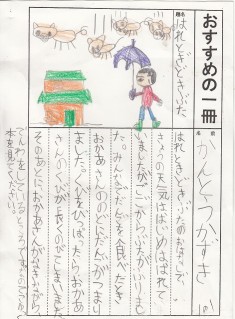 おすすめの一冊
題名
はれときどきぶた
名前
かんとうかずき
はれときどきぶたのおはなしで、
きょうの天気ははじめははれて
いましたがごごからぶたがふりまし
た。みんなでだんごを食べたとき
おかあさんののどにだんごがつまり
ました。くびをひっぱったらおかあ
さんのくびが長くのびてしまいました
そのあとにおかあさんが
でんわをしているところが
本を見てください。